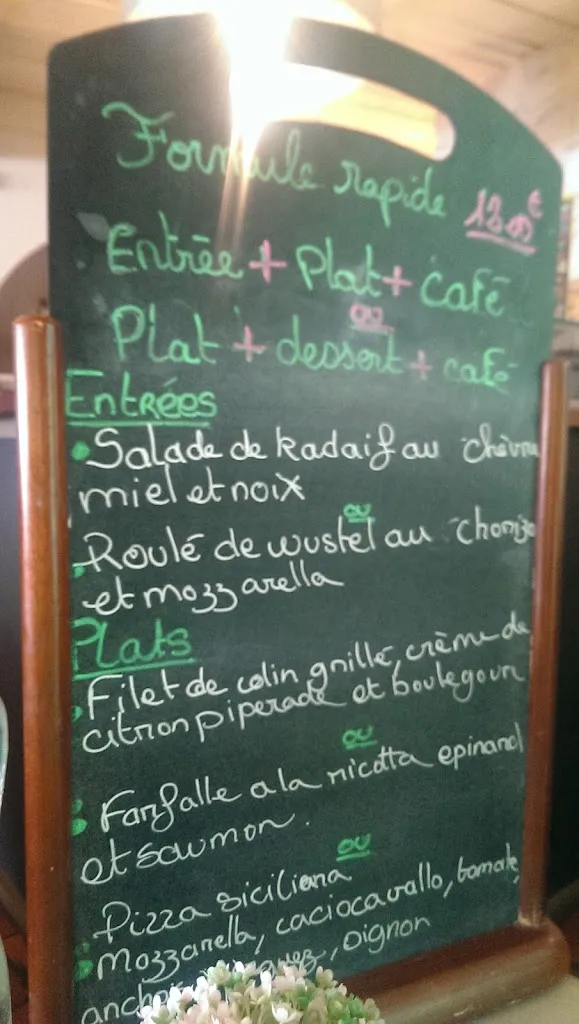 Formule rapide
Entrée + Plat + café
ou
Plat + dessert + café
Entrées
Salade de kadaif au chèvre
miel et noix
ou
Roulé de wustel au chorizo
et mozzarella
Plats
Filet de colin grillé, crème de
citron piperade et boulegour
ou
Farfalle a la ricotta epinard
et saumon.
ou
Pizza siciliana
mozzarella, caciocavallo, tomate,
oignon